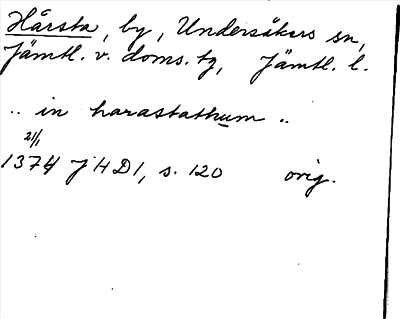 Hårsta, by, Undersåkers sn,
Jämtl. v. doms. tg, Jämtl. l.
.. in harastathum ..
21/1
1374 J H D 1, s. 120 orig.